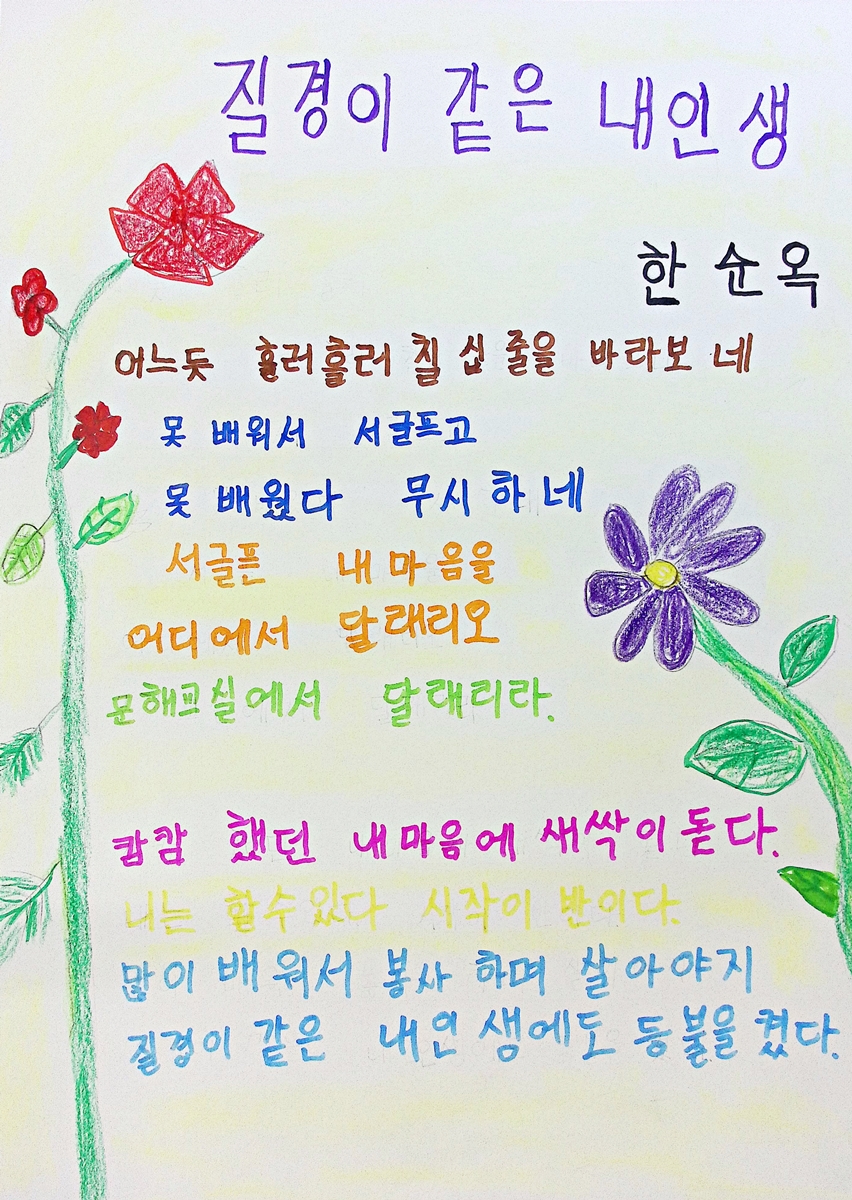 질경이 같은 내인생
한순옥
어느듯 흘러흘러 칠십 줄을 바라보네
못 배워서 서글프고
못 배웠다 무시하네
서글픈 내마음을
어디에서 달래리오
문해교실에서 달래리라.
캄캄 했던 내마음에 새싹이 돋다.
나는 할수있다 시작이 반이다.
많이 배워서 봉사 하며 살아야지
질경이 같은 내인생에도 등불을 켰다.